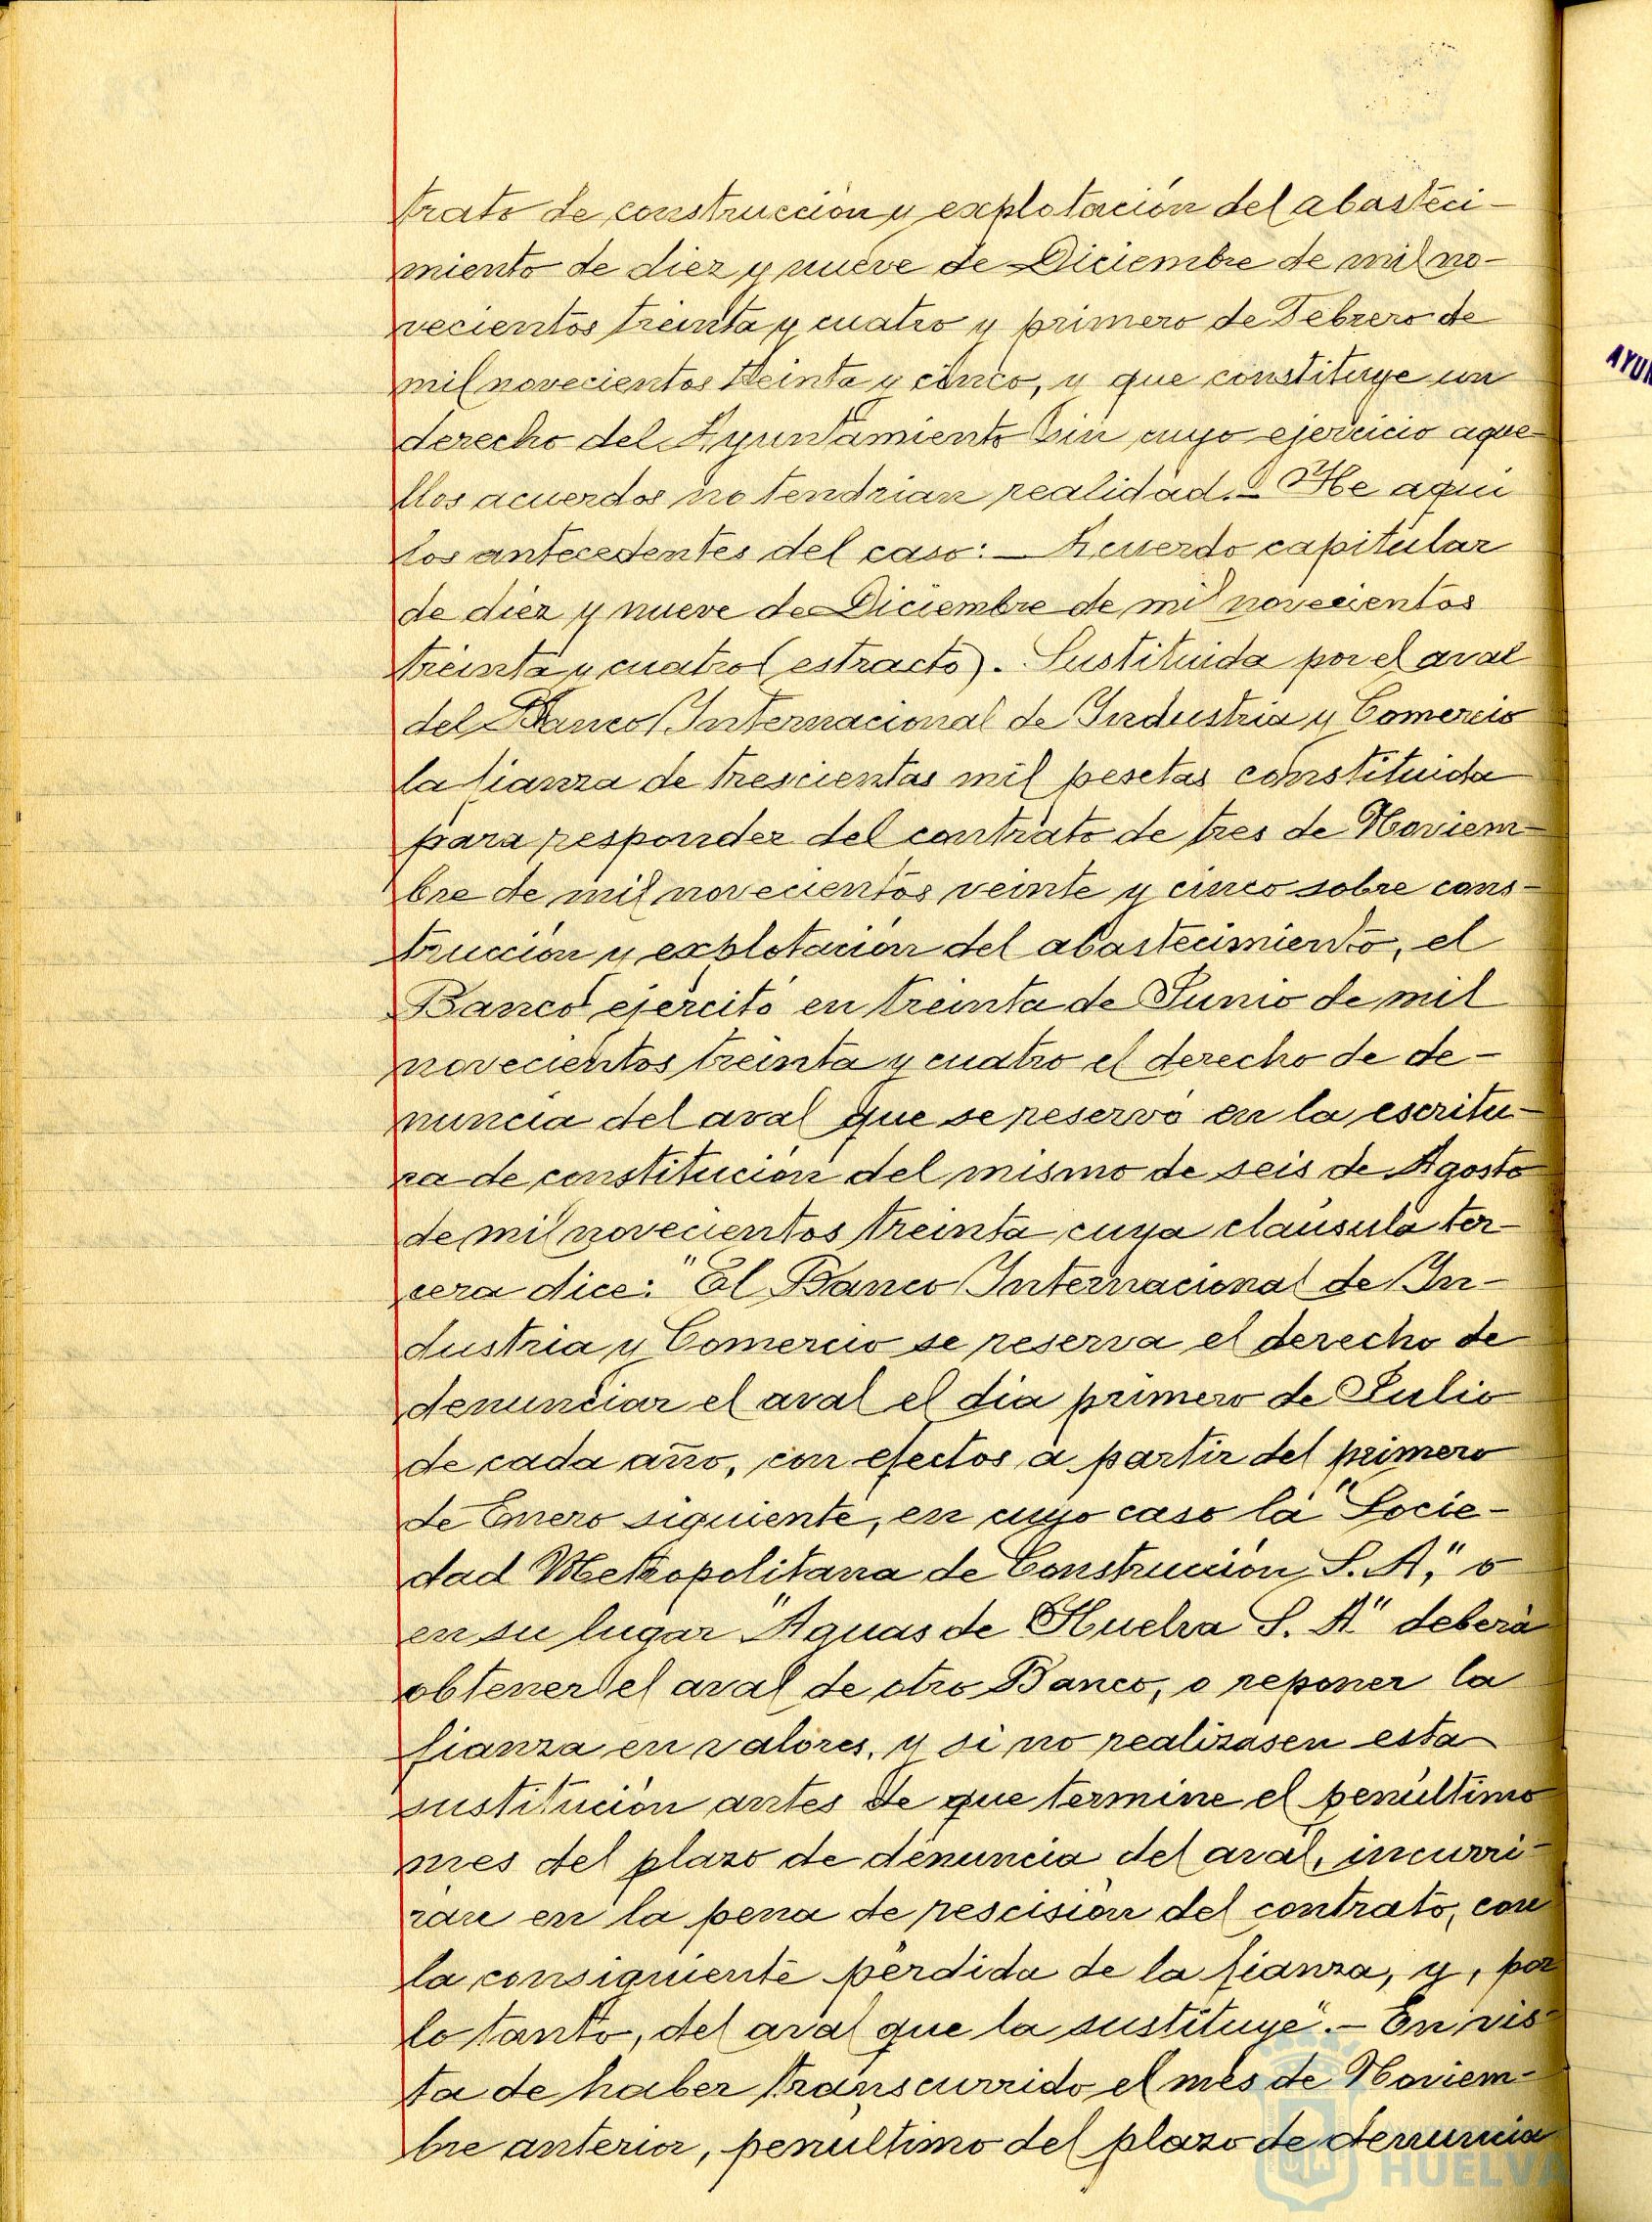 trato de construcción y explotación del abasteci-
miento de diez y nueve de Diciembre de mil no-
vecientos treinta y cuatro y primero de Febrero de
mil novecientos treinta y cinco, y que constituye un
derecho del Ayuntamiento sin cuyo ejercicio aque-
llos acuerdos no tendrian realidad.- He aqui
los antecedentes del caso: - Acuerdo capitular
de diez y nueve de Diciembre de mil novecientos
treinta y cuatro (estracto). Sustituida por el aval
del Banco Internacional de Industria y Comercio
la fianza de trescientas mil pesetas constituida
para responder del contrato de tres de Noviem-
bre de mil novecientos veinte y cinco sobre cons-
trucción y explotación del abastecimiento, el
Banco ejercitó en treinta de Junio de mil
novecientos treinta y cuatro el derecho de de-
nuncia del aval que se reservó en la escritu-
ra de constitución del mismo de seis de Agosto
de mil novecientos treinta cuya clausula ter-
cera dice: "El Banco Internacional de In-
dustria y Comercio se reserva el derecho de
denunciar el aval el dia primero de Julio
de cada año, con efectos a partir del primero
de Enero siguiente, en cuyo caso la "Socie-
dad Metropolitana de Construcción, S. A," o
en su lugar "Aguas de Huelva S. A" deberá
obtener el aval de otro Banco, o reponer la
fianza en valores, y si no realizasen esta
sustitución antes de que termine el penúltimo
mes del plazo de denuncia del aval, incurri-
rán en la pena de rescisión del contrato, con
la consiguiente pérdida de la fianza, y, por
lo tanto, del aval que la sustituye".- En vis-
ta de haber transcurrido el mes de Noviem-
bre anterior, penultimo del plazo de denuncia
HUELVA
AYUN